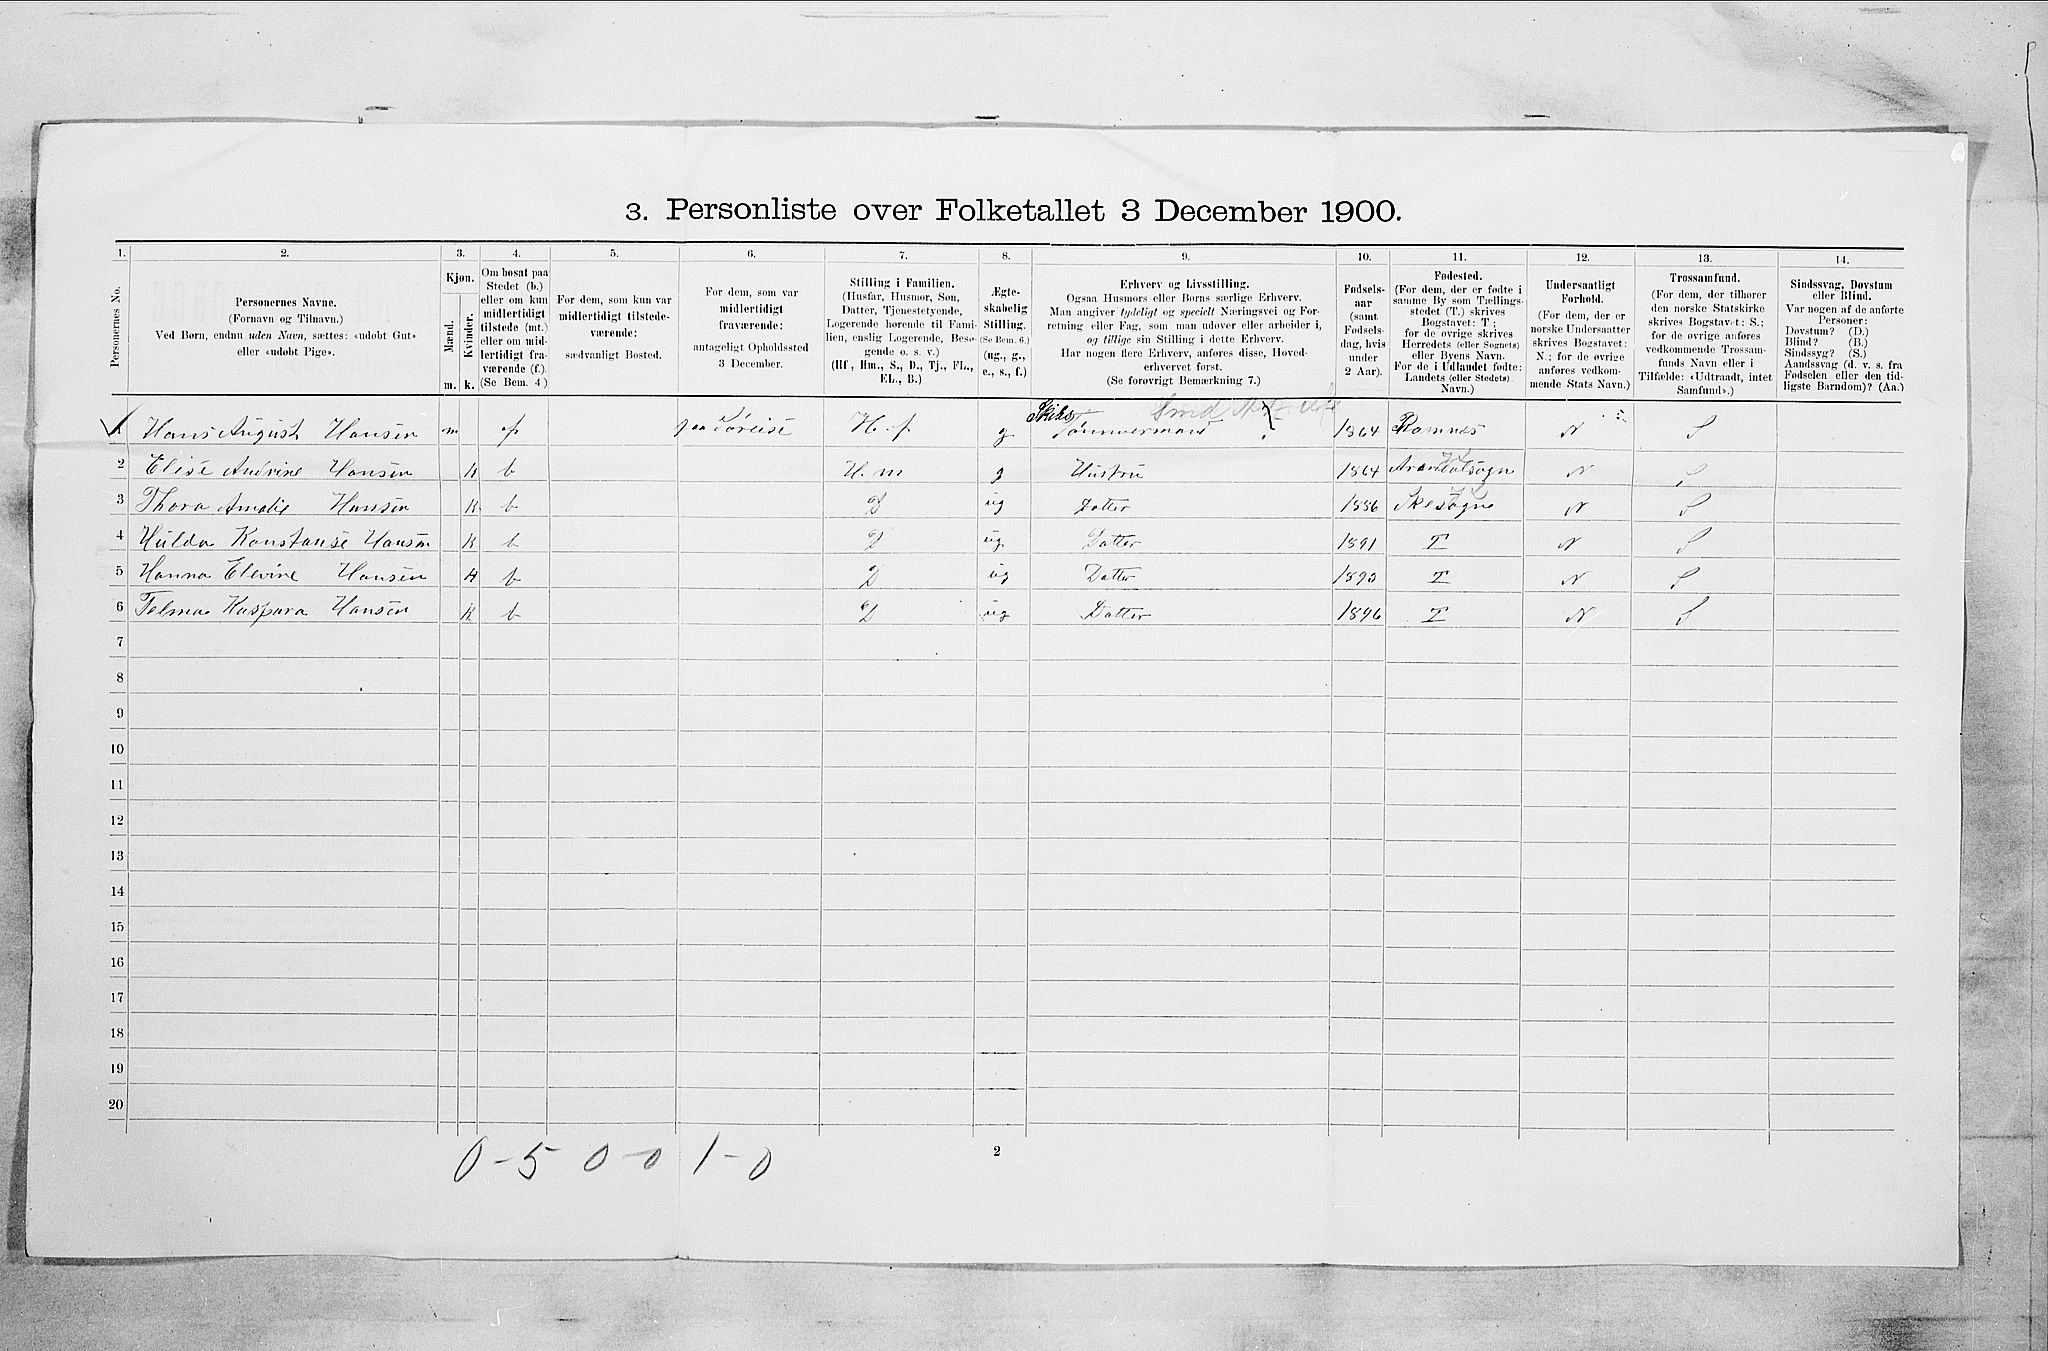 3. Personliste over Folketallet 3 December 1900.
1. 2. 3. 4. 5. 6. 7. 8. 9. 10. 11. 12. 13. 14.
Personernes No.
Personernes Navne.
(Fornavn og Tilnavn.)
Ved Børn, endnu uden Navn, sættes: «udøbt Gut»
eller «udøbt Pige».
Kjøn.
Mænd. Kvinder.
m. k.
Om bosat paa
Stedet (b.)
eller om kun
midlertidigt
tilstede (mt.)
eller om mid-
lertidigt fra-
værende (f.).
(Se Bem. 4)
For dem, som kun var
midlertidigt tilstede-
værende:
sædvanligt Bosted.
For dem, som var
midlertidigt
fraværende:
antageligt Opholdssted
3 December.
Stilling i Familien.
(Husfar, Husmor, Søn,
Datter, Tjenestetyende,
Logerende hørende til Fami-
lien, enslig Logerende, Besø-
gende o. s. v.)
(Hf, Hm., S., D., Tj., FL.,
EL., B.)
Ægte-
skabelig
Stilling.
(Se Bem. 6.)
(ug., g.,
e., s., f.)
Erhverv og Livsstilling.
Ogsaa Husmors eller Børns særlige Erhverv.
Man angiver tydeligt og specielt Næringsvei og For-
retning eller Fag, som man udøver eller arbeider i,
og tillige sin Stilling i dette Erhverv.
Har nogen flere Erhverv, anføres disse, Hoved-
erhvervet først.
(Se forøvrigt Bemærkning 7.)
Fødsels-
aar
(samt
Fødsels-
dag, hvis
under
2 Aar).
Fødested.
(For dem, der er fødte i
samme By som Tællings-
stedet (T.) skrives
Bogstavet: T.;
for de øvrige skrives
Herredets (eller Sognets)
eller Byens Navn.
For de i Udlandet fødte:
Landets (eller Stedets)
Navn.)
Undersaatligt
Forhold.
(For dem, der er
norske Undersaatter
skrives Bogstavet:
N.; for de øvrige
anføres vedkom-
mende Stats Navn.)
Trossamfund.
(For dem, der tilhører
den norske Statskirke
skrives Bogstavet: S.;
for de øvrige anføres
vedkommende Trossam-
funds Navn eller i
Tilfælde: «Udtraadt, intet
Samfund».)
Sindssvag, Døvstum
eller Blind.
Var nogen af de anførte
Personer:
Døvstum? (D.)
Blind? (B.)
Sindssyg? (S.)
Aandssvag (d. v. s. fra
Fødselen eller den tid-
ligste Barndom)? (Aa.)
Skibs Smd
1 Hans August Hansen m f paa Søreise H. f. g Tømmermand 1864 Ramnes N S
2 Elise Andrine Hansen k b H. m g Hustru 1864 N S
3 Thora Amalie Hansen k b D ug Datter 1886 N S
4 Hulda Konstanse Hansen k b D ug Datter 1891 T N S
5 Hanna Elevine Hansen k b D ug Datter 1893 T N S
6 Telma Kaspara Hansen k b D ug Datter 1896 T N S
7
8
9
10
11
12
13
14
15
16
17
18
19
20
0-5 0-0 1-0
2